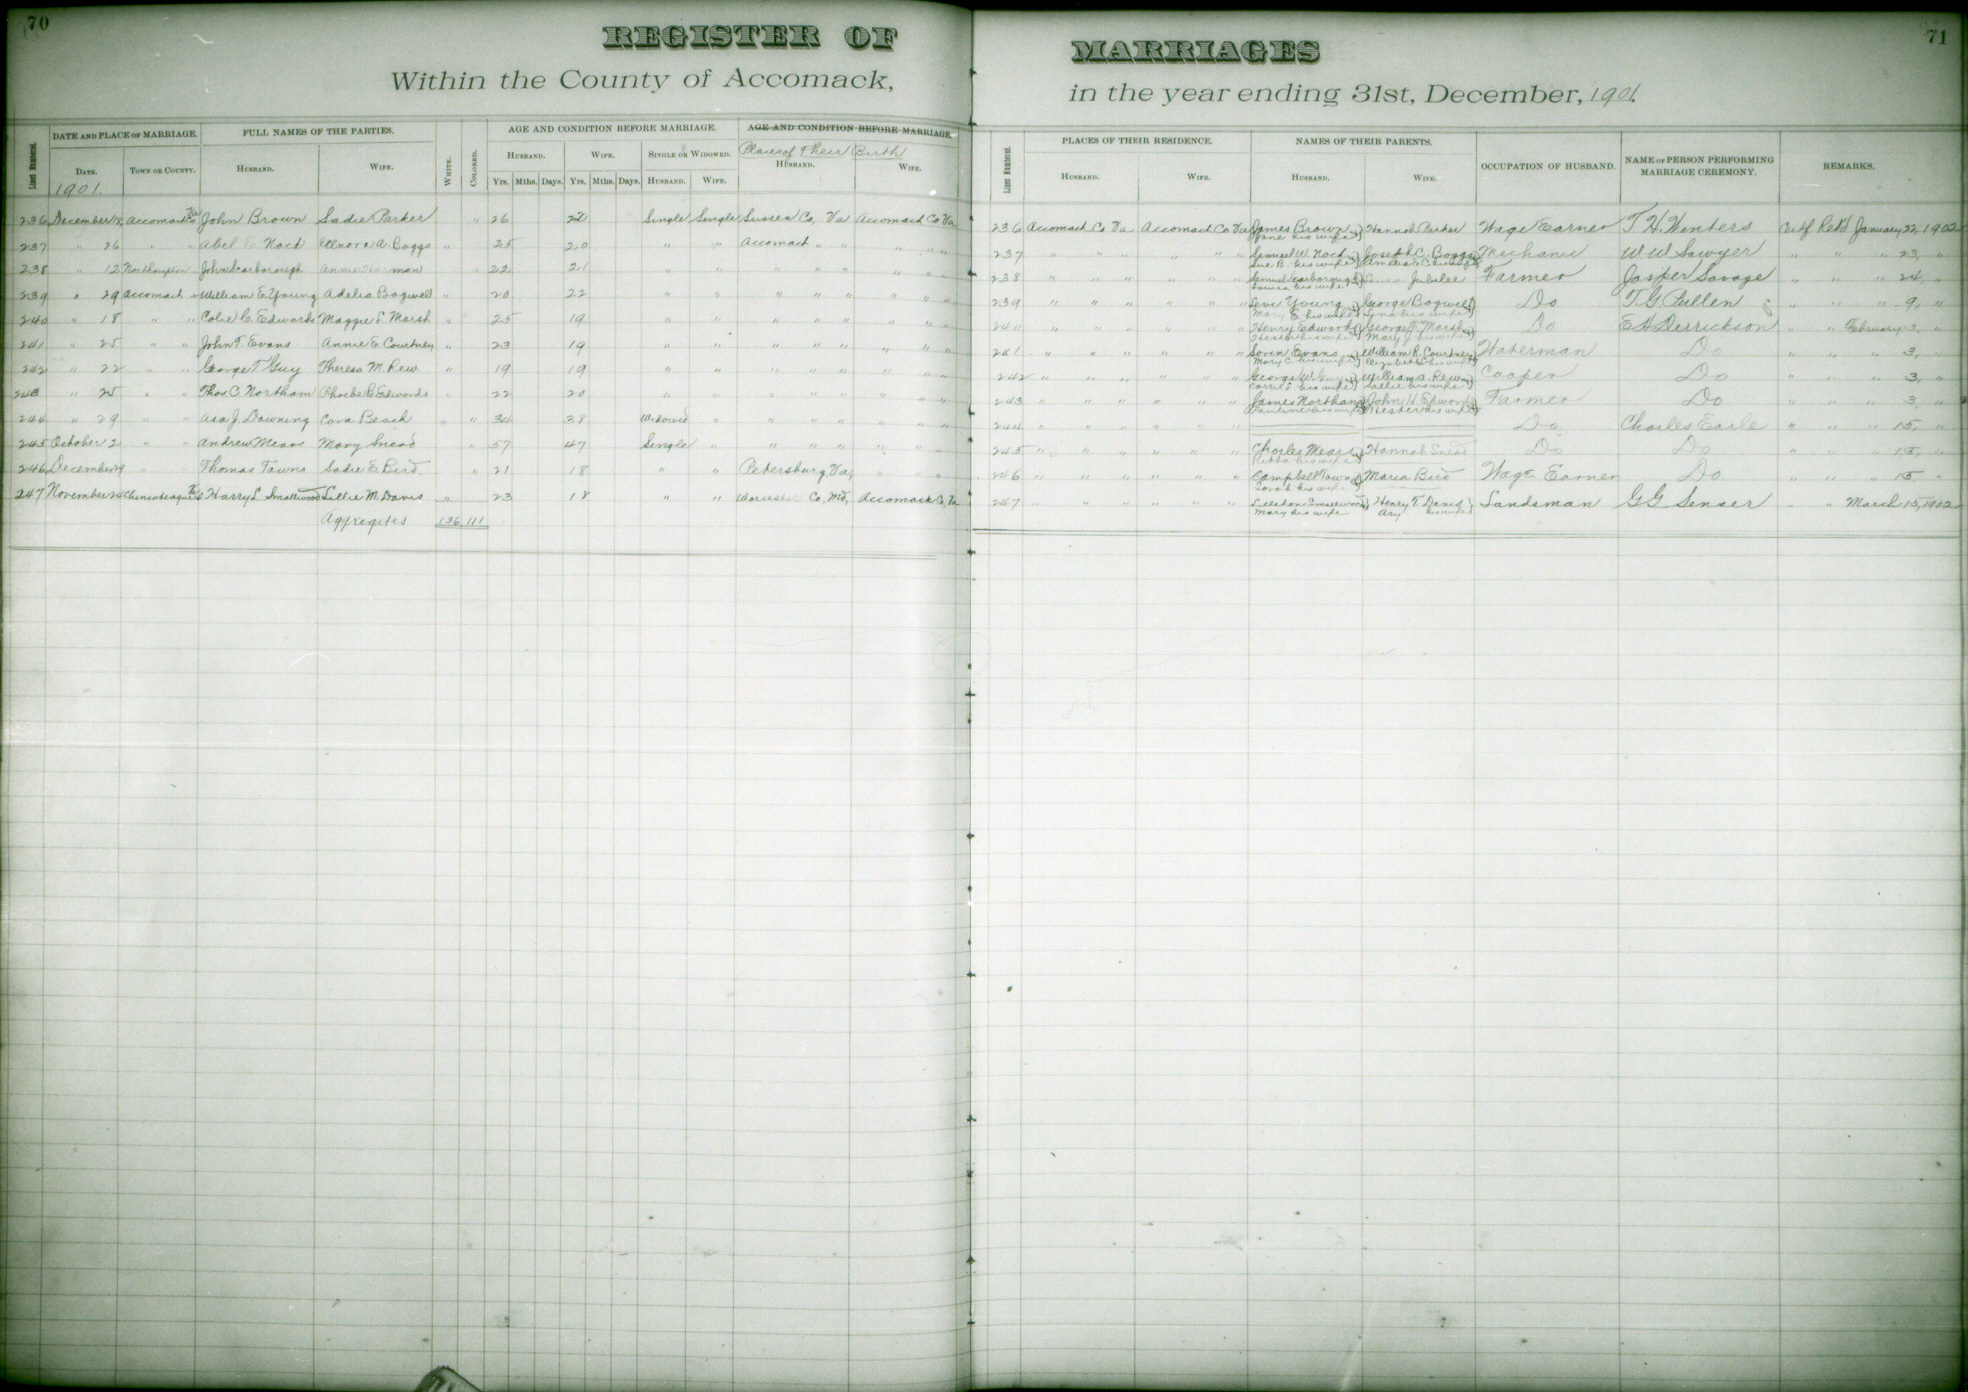 70
REGISTER OF
Within the County of Accomack,
Line Number.
DATE AND PLACE OF MARRIAGE.
FULL NAMES OF THE PARTIES.
WHITE.
COLORED.
AGE AND CONDITION BEFORE MARRIAGE.
AGE AND CONDITION BEFORE MARRIAGE.
Places of Their Birth
DATE. TOWN OR COUNTY. HUSBAND. WIFE. HUSBAND. WIFE. SINGLE OR WIDOWED. HUSBAND. WIFE.
1901. Yrs. Mths. Days. Yrs. Mths. Days. HUSBAND. WIFE.
236 December Accomack Co Va John Brown Sadie Parker " 26 Single Single Sussex Co, Va Accomack Co Va
237 " 26 " " Abel Nock Ellnora A. Boggs " 25 20 " " Accomack " " " " "
238 " 12 Northampton John Scarborough Annie Harmon " 22 21 " " " " " " " "
239 " 29 Accomack " William E. Young Adelia Bagwell " 20 22 " " " " " " " "
240 " 18 " " Colie C. Edwards Maggie L. Marsh " 25 19 " " " " " " " "
241 " 25 " " John T. Evans Annie E. Courtney " 23 19 " " " " " " " "
242 " 22 " " George T. Guy Theresa M. Rew " 19 19 " " " " " " " "
243 " 25 " " Thos. C. Northam Phoebe B. Edwards " 22 20 " " " " " " " "
244 " 29 " " Asa J. Downing Cora Beach " 34 38 Widowed " " " " " " "
245 October 2 " " Andrew Mears Mary Snead " 57 47 Single " " " " " " "
246 December 19 " " Thomas Fawns Sadie E. Bird " 21 18 " " Petersburg, Va, " "
247 November 24 Chincoteague Va Harry L. Smallwood Lillie M. Davis " 23 18 " " Worcester Co, Md, Accomack Co, Va
Aggregates 136 111
71
MARRIAGES
in the year ending 31st, December, 1901.
Line Number.
PLACES OF THEIR RESIDENCE. NAMES OF THEIR PARENTS. OCCUPATION OF HUSBAND. NAME OF PERSON PERFORMING MARRIAGE CEREMONY. REMARKS.
HUSBAND. WIFE. HUSBAND. WIFE.
236 Accomack Co Va Accomack Co Va James Brown Hannah Parker Wage Earner T. H. Winters Certf Ret'd January 22, 1902
Jane his wife
237 " " " " " " Samuel W. Nock Joseph C. Boggs Mechanic W W Sawyer " " " 23, "
Sue B. his wife
238 " " " " " " Samuel Scarborough Jubilee Farmer Jasper Savage " " " 24, "
his wife
239 " " " " " " Levi Young George Bagwell Do T. G. Pullen " " " 9, "
Mary E. his wife his wife
240 " " " " " " Henry Edwards George F. Marsh Do E H Derrickson " " February 3, "
his wife Mary J. his wife
241 " " " " " " Evans William R. Courtney Waterman Do " " " 3, "
Mary C. his wife Elizabeth his wife
242 " " " " " " George W. Guy William A. Rew Cooper Do " " " 3, "
his wife Sallie his wife
243 " " " " " " James Northam John H. Edwards Farmer Do " " " 3, "
his wife Hester his wife
244 " " " " " " Do Charles Earle " " " 15, "
245 " " " " " " Charles Mears Hannah Snead Do Do " " " 15, "
his wife
246 " " " " " " Campbell Maria Bird Wage Earner Do " " " 15, "
Sarah his wife
247 " " " " " " Smallwood Henry T. Davis Landsman G G Senser " " March 15, 1902
Mary his wife his wife